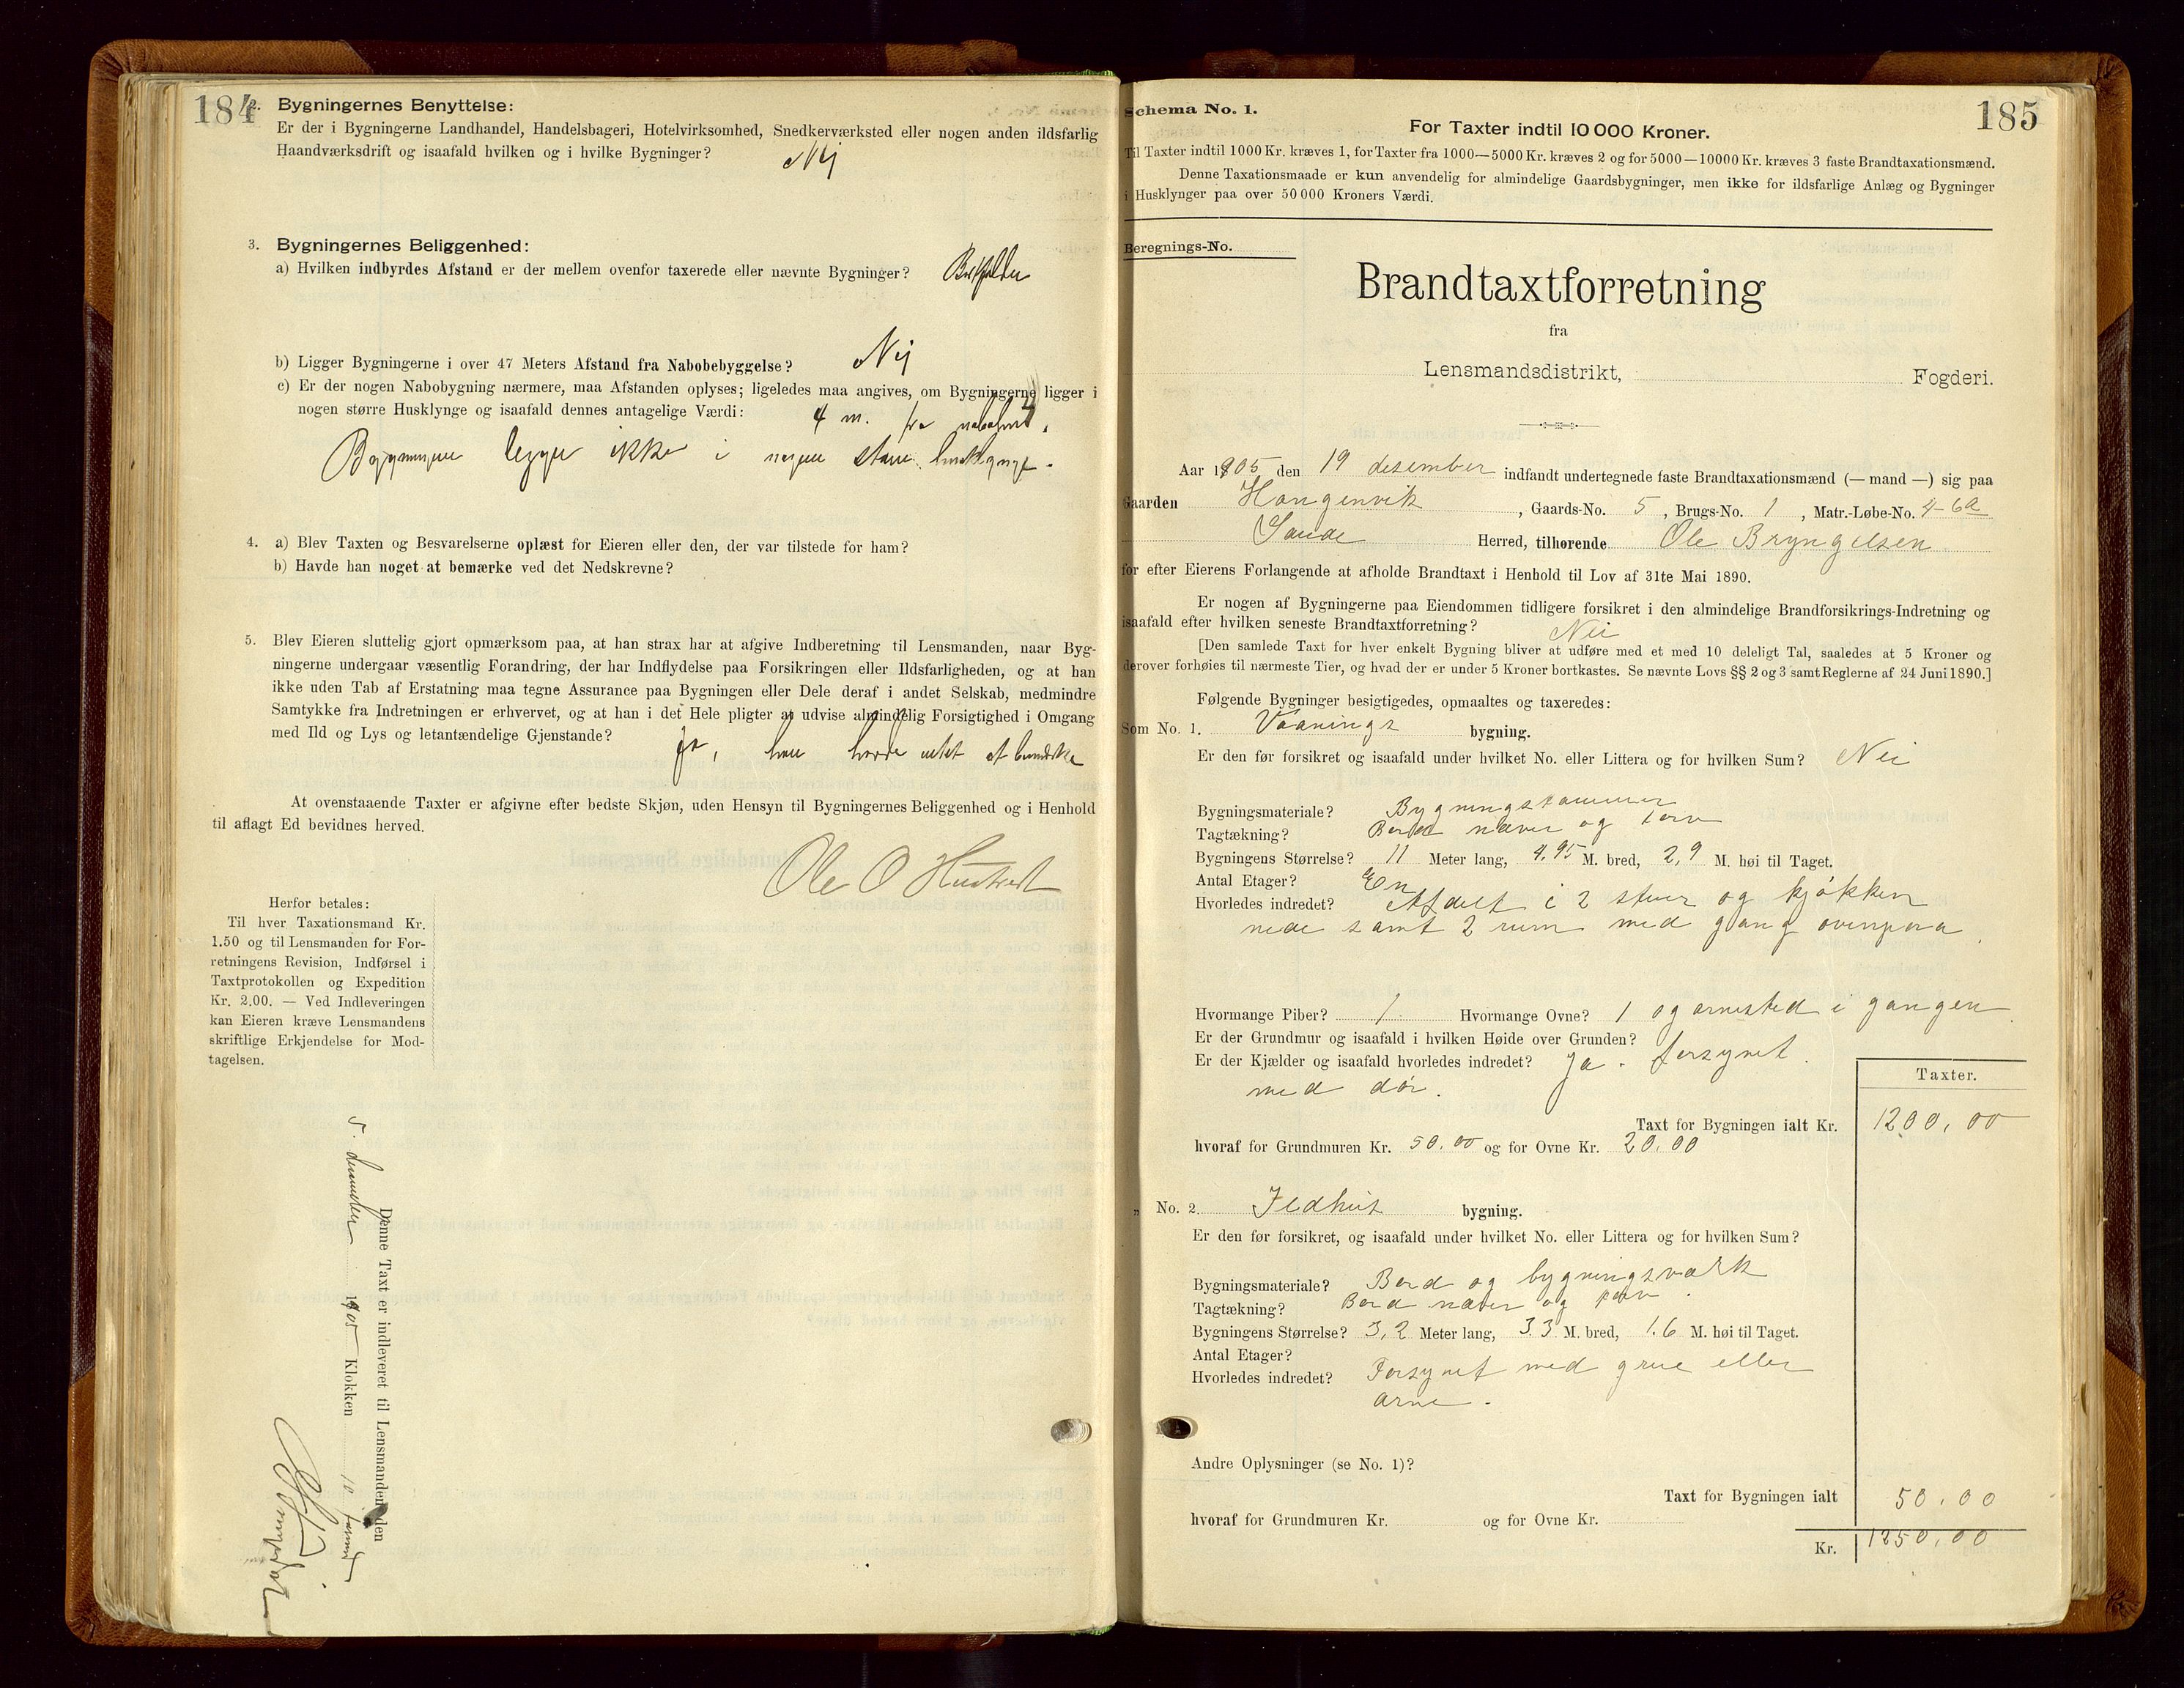 184
2. Bygningernes Benyttelse:
Er der i Bygningerne Landhandel, Handelsbageri, Hotelvirksomhed, Snedkerværksted eller nogen anden ildsfarlig
Haandværksdrift og isaafald hvilken og i hvilke Bygninger? Nej
3. Bygningernes Beliggenhed:
a) Hvilken indbyrdes Afstand er der mellem ovenfor taxerede eller nævnte Bygninger?
b) Ligger Bygningerne i over 47 Meters Afstand fra Nabobebyggelse? Nej
c) Er der nogen Nabobygning nærmere, maa Afstanden oplyses; ligeledes maa angives, om Bygningerne ligger i
nogen større Husklynge og isaafald dennes antagelige Værdi: 4 m. fra
ikke i
4. a) Blev Taxten og Besvarelserne oplæst for Eieren eller den, der var tilstede for ham?
b) Havde han noget at bemærke ved det Nedskrevne?
5. Blev Eieren sluttelig gjort opmærksom paa, at han strax har at afgive Indberetning til Lensmanden, naar Byg-
ningerne undergaar væsentlig Forandring, der har Indflydelse paa Forsikringen eller Ildsfarligheden, og at han
ikke uden Tab af Erstatning maa tegne Assurance paa Bygningen eller Dele deraf i andet Selskab, medmindre
Samtykke fra Indretningen er erhvervet, og at han i det Hele pligter at udvise almindelig Forsigtighed i Omgang
med Ild og Lys og letantændelige Gjenstande? Ja, han havde intet at bemærke
At ovenstaaende Taxter er afgivne efter bedste Skjøn, uden Hensyn til Bygningernes Beliggenhed og i Henhold
til aflagt Ed bevidnes herved.
Ole O
Herfor betales:
Til hver Taxationsmand Kr.
1.50 og til Lensmanden for For-
retningens Revision, Indførsel i
Taxtprotokollen og Expedition
Kr. 2.00. — Ved Indleveringen
kan Eieren kræve Lensmandens
skriftlige Erkjendelse for Mod-
tagelsen.
Denne Taxt er indleveret til Lensmanden den
1905 Klokken 10
Schema No. 1.
185
For Taxter indtil 10 000 Kroner.
Til Taxter indtil 1000 Kr. kræves 1, for Taxter fra 1000—5000 Kr. kræves 2 og for 5000—10000 Kr. kræves 3 faste Brandtaxationsmænd.
Denne Taxationsmaade er kun anvendelig for almindelige Gaardsbygninger, men ikke for ildsfarlige Anlæg og Bygninger
i Husklynger paa over 50 000 Kroners Værdi.
Beregnings-No.
Brandtaxtforretning
fra
Lensmandsdistrikt, Fogderi.
Aar 1905 den 19 desember indfandt undertegnede faste Brandtaxationsmænd (— mand —) sig paa
Gaarden Haugenvik, Gaards-No. 5, Brugs-No. 1, Matr.-Løbe-No. 4-6a
Sande Herred, tilhørende Ole Bryngelsen
for efter Eierens Forlangende at afholde Brandtaxt i Henhold til Lov af 31te Mai 1890.
Er nogen af Bygningerne paa Eiendommen tidligere forsikret i den almindelige Brandforsikrings-Indretning og
isaafald efter hvilken seneste Brandtaxtforretning? Nei
[Den samlede Taxt for hver enkelt Bygning bliver at udføre med et med 10 deleligt Tal, saaledes at 5 Kroner og
derover forhøies til nærmeste Tier, og hvad der er under 5 Kroner bortkastes. Se nævnte Lovs §§ 2 og 3 samt Reglerne af 24 Juni 1890.]
Følgende Bygninger besigtigedes, opmaaltes og taxeredes:
Som No. 1. Vaanings bygning.
Er den før forsikret og isaafald under hvilket No. eller Littera og for hvilken Sum? Nei
Bygningsmateriale? Bygningstømmer
Tagtækning? Bord næver og torv
Bygningens Størrelse? 11 Meter lang, 4,95 M. bred, 2,9 M. høi til Taget.
Antal Etager? En
Hvorledes indredet? Afdelt i 2 stuer og kjøkken
nede samt 2 rum med gang ovenpaa
Hvormange Piber? 1 Hvormange Ovne? 1 og arnested i gangen
Er der Grundmur og isaafald i hvilken Høide over Grunden?
Er der Kjælder og isaafald hvorledes indredet? Ja. forsynet
med dør.
Taxter.
Taxt for Bygningen ialt Kr. 1200,00
hvoraf for Grundmuren Kr. 50,00 og for Ovne Kr. 20,00
" No. 2. Ildhus bygning.
Er den før forsikret, og isaafald under hvilket No. eller Littera og for hvilken Sum?
Bygningsmateriale? Bord og bygningsværk
Tagtækning? Bord næver og torv
Bygningens Størrelse? 3,2 Meter lang, 3.3 M. bred, 1.6 M. høi til Taget.
Antal Etager?
Hvorledes indredet? Forsynet med grue eller
arne.
Andre Oplysninger (se No. 1)?
Taxt for Bygningen ialt 50.00
hvoraf for Grundmuren Kr. og for Ovne Kr.
Kr. 1250,00